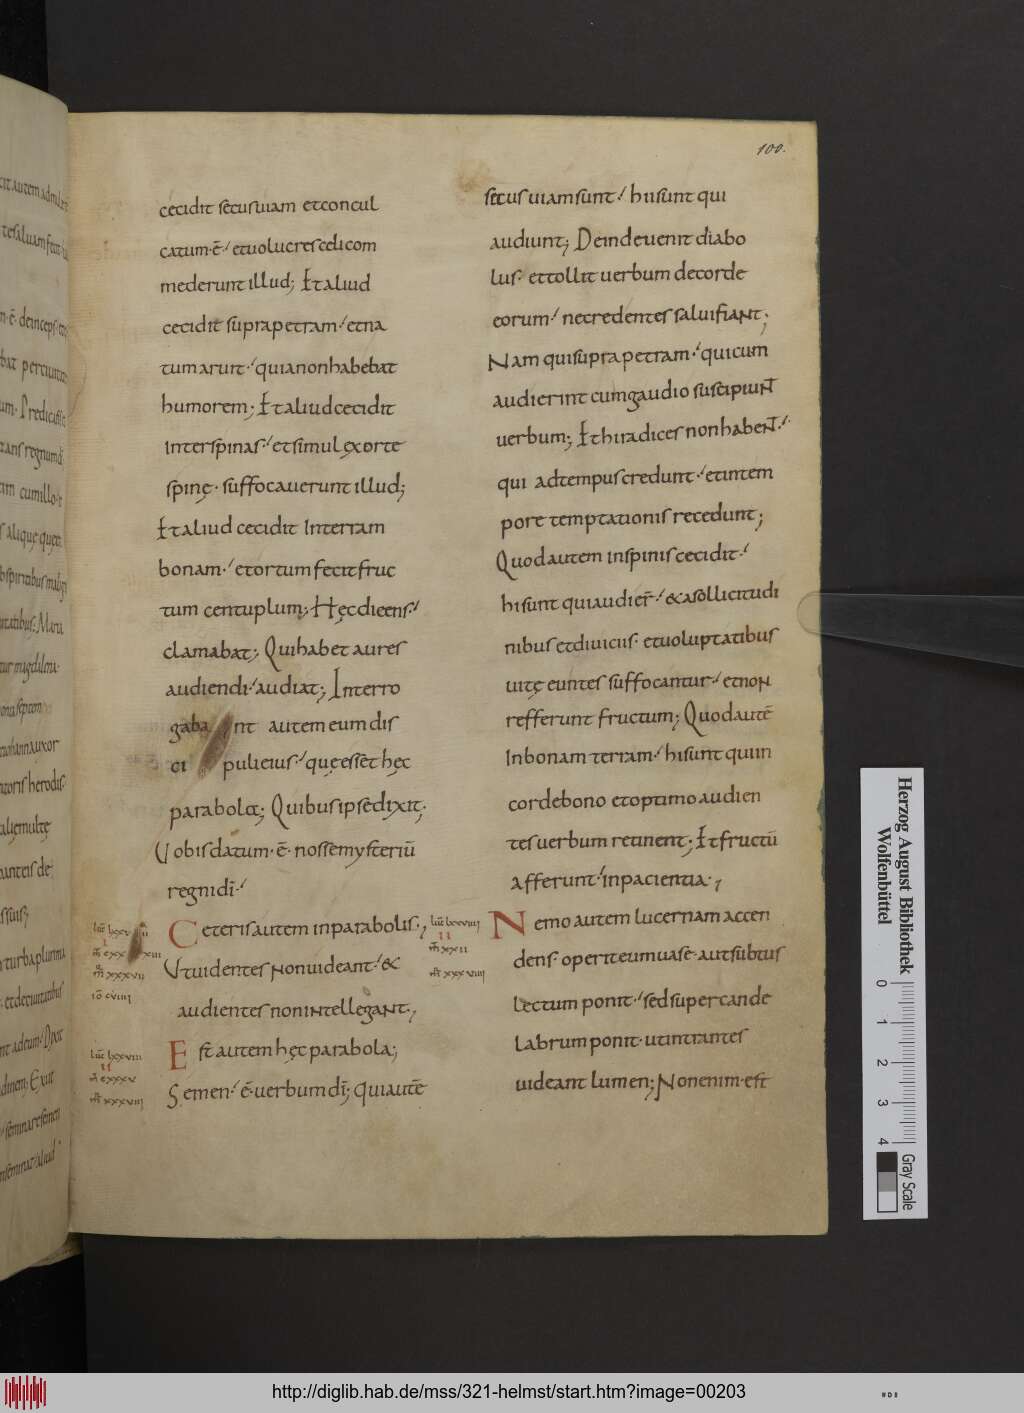 100.
cecidit secusuiam etconcul
catum·ē·/ etuolucrescelicom
mederuntillud; Etaliud
cecidit suprapetram·/ etna
tumaruit·/ quianonhabebat
humorem; Etaliudcecidit
interspinas·/ etsimulęxorte
spinę· suffocaueruntillud;
Etaliud cecidit Interram
bonam·/ etortumfecitfruc
tum centuplum; Hęcdicens·/
clamabat; Quihabetaures
audiendi·/ audiat; Interro
gaba nt autemeumdis
ci pulieius·/ quęessethęc
parabola; Quibusipsedixit;
Uobisdatum·ē· nossemysteriū
regnidī·/
Ceterisautem inparabolis·,
Utuidentes Nonuideant·/ &
audientes nonintellegant·,
Est autem hęcparabola;
Semen·/ ē·uerbumdī; quiautē
secus uiamsunt·/ hiisunt qui
audiunt; Deindeuenit diabo
lus· ettollituerbum decorde
eorum·/ necredentessaluifiant;
Nam quisuprapetram·/ quicum
audierint cumgaudio suscipiunt
uerbum; Ethiiradices nonhabent·/
qui adtempuscredunt·/ etintem
pore temptationis recedunt;
Quodautem inspiniscecidit·/
hisunt quiaudier̄·/ &asollicitudi
nibus etdiuiciis· etuoluptatibus
uitę euntes suffocantur·/ etnon
refferunt fructum; Quodautē
Inbonam terram·/ hisunt quiin
cordebono etoptimoaudien
tesuerbum retinent; Etfructū
afferunt·/ inpacientia·,
Nemo autem lucernam accen
dens· operiteumuase· autsubtus
lectum ponit·/ sedsupercande
labrumponit· utintrantes
uideant lumen; Nonenim·est
lūc lxxviiii
II
m̄ xxxvii
iō cviiii
lūc lxxviii
II
m̄ cxxxv
m̄r xxxviii
Herzog August Bibliothek
Wolfenbüttel
0 1 2 3 4
Gray Scale
http://diglib.hab.de/mss/321-helmst/start.htm?image=00203